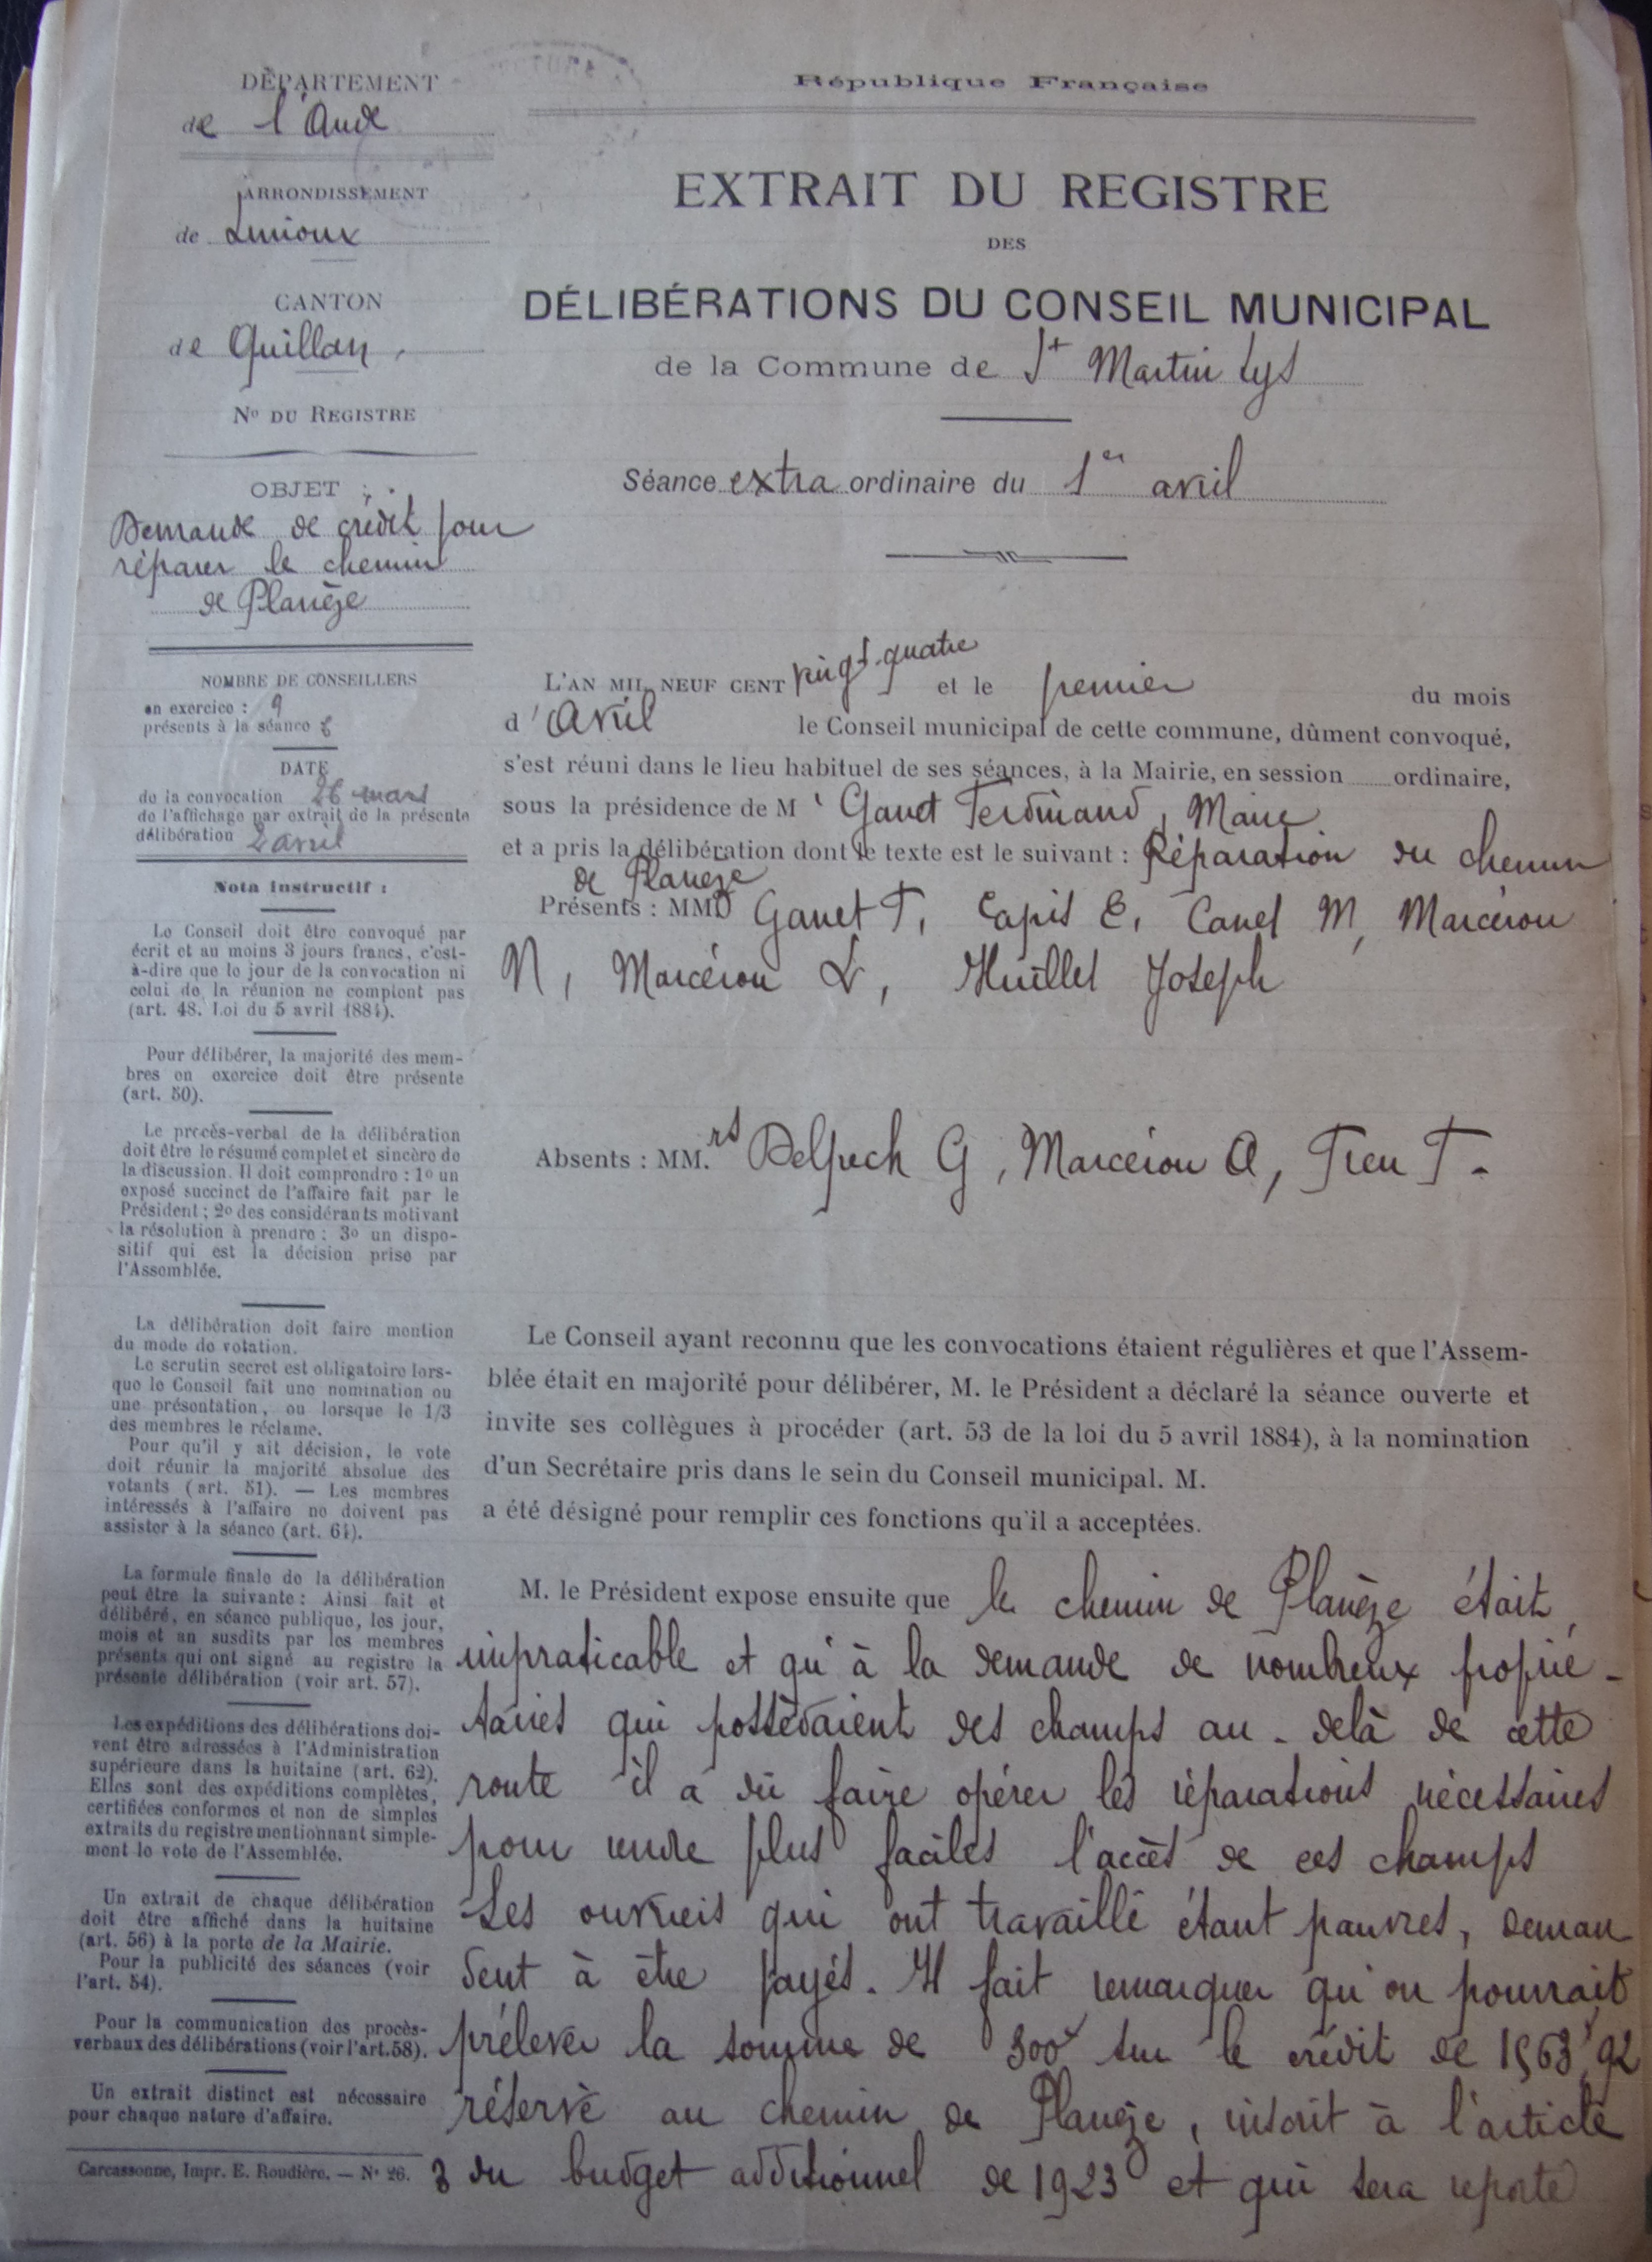 DÉPARTEMENT
de l'Aude
ARRONDISSEMENT
de Limoux
CANTON
de Quillan
No DU REGISTRE
OBJET :
Demande de crédit pour
réparer le chemin
de Planèze
NOMBRE DE CONSEILLERS
en exercice : 9
présents à la séance 6
DATE
de la convocation 26 mars
de l'affichage par extrait de la présente
délibération 2 avril
Nota instructif :
Le Conseil doit être convoqué par
écrit et au moins 3 jours francs, c'est-
à-dire que le jour de la convocation ni
celui de la réunion ne comptent pas
(art. 48. Loi du 5 avril 1884).
Pour délibérer, la majorité des mem-
bres en exercice doit être présente
(art. 50).
Le procès-verbal de la délibération
doit être le résumé complet et sincère de
la discussion. Il doit comprendre : 1o un
exposé succinct de l'affaire fait par le
Président ; 2o des considérants motivant
la résolution à prendre : 3o un dispo-
sitif qui est la décision prise par
l'Assemblée.
La délibération doit faire mention
du mode de votation.
Le scrutin secret est obligatoire lors-
que le Conseil fait une nomination ou
une présentation, ou lorsque le 1/3
des membres le réclame.
Pour qu'il y ait décision, le vote
doit réunir la majorité absolue des
votants (art. 51). — Les membres
intéressés à l'affaire ne doivent pas
assister à la séance (art. 64).
La formule finale de la délibération
peut être la suivante : Ainsi fait et
délibéré, en séance publique, les jour,
mois et an susdits par les membres
présents qui ont signé au registre la
présente délibération (voir art. 57).
Les expéditions des délibérations doi-
vent être adressées à l'Administration
supérieure dans la huitaine (art. 62).
Elles sont des expéditions complètes,
certifiées conformes et non de simples
extraits du registre mentionnant simple-
ment le vote de l'Assemblée.
Un extrait de chaque délibération
doit être affiché dans la huitaine
(art. 56) à la porte de la Mairie.
Pour la publicité des séances (voir
l'art. 54).
Pour la communication des procès-
verbaux des délibérations (voir l'art. 58).
Un extrait distinct est nécessaire
pour chaque nature d'affaire.
Carcassonne, Impr. E. Roudière. — No 26.
République Française
EXTRAIT DU REGISTRE
DES
DÉLIBÉRATIONS DU CONSEIL MUNICIPAL
de la Commune de St Martin Lys
Séance extra ordinaire du 1er avril
L'AN MIL NEUF CENT vingt-quatre et le premier du mois
d'Avril le Conseil municipal de cette commune, dûment convoqué,
s'est réuni dans le lieu habituel de ses séances, à la Mairie, en session ordinaire,
sous la présidence de M Gauet Ferdinand, Maire
et a pris la délibération dont le texte est le suivant : Réparation du chemin
de Planeze
Présents : MM. Gauet F, Tapis E, Canel M, Marcérou
N, Marcérou L, Huillet Joseph
Absents : MM.rs Delpech G, Marcérou A, Treu F.
Le Conseil ayant reconnu que les convocations étaient régulières et que l'Assem-
blée était en majorité pour délibérer, M. le Président a déclaré la séance ouverte et
invite ses collègues à procéder (art. 53 de la loi du 5 avril 1884), à la nomination
d'un Secrétaire pris dans le sein du Conseil municipal. M.
a été désigné pour remplir ces fonctions qu'il a acceptées.
M. le Président expose ensuite que le chemin de Planèze était
impraticable et qu'à la demande de nombreux proprié-
taires qui possèdaient des champs au-delà de cette
route il a dû faire opérer les réparations nécessaires
pour rendre plus faciles l'accès de ces champs
Les ouvriers qui ont travaillé étant pauvres, deman
dent à être payés. Il fait remarquer qu'on pourrait
prélever la somme de 300f sur le crédit de 1563f,92
réservé au chemin de Planèze, inscrit à l'article
3 du budget additionnel de 1923 et qui sera reporté